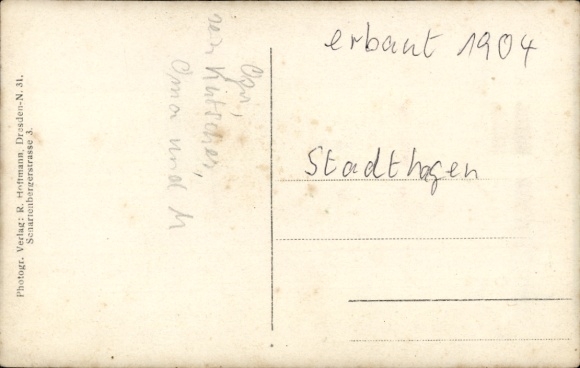 erbaut 1904
Stadthagen
Opi,
sein Kutscher,
Oma und M
Photogr. Verlag: R. Hoffmann, Dresden-N. 31.
Scharfenbergerstrasse 3.